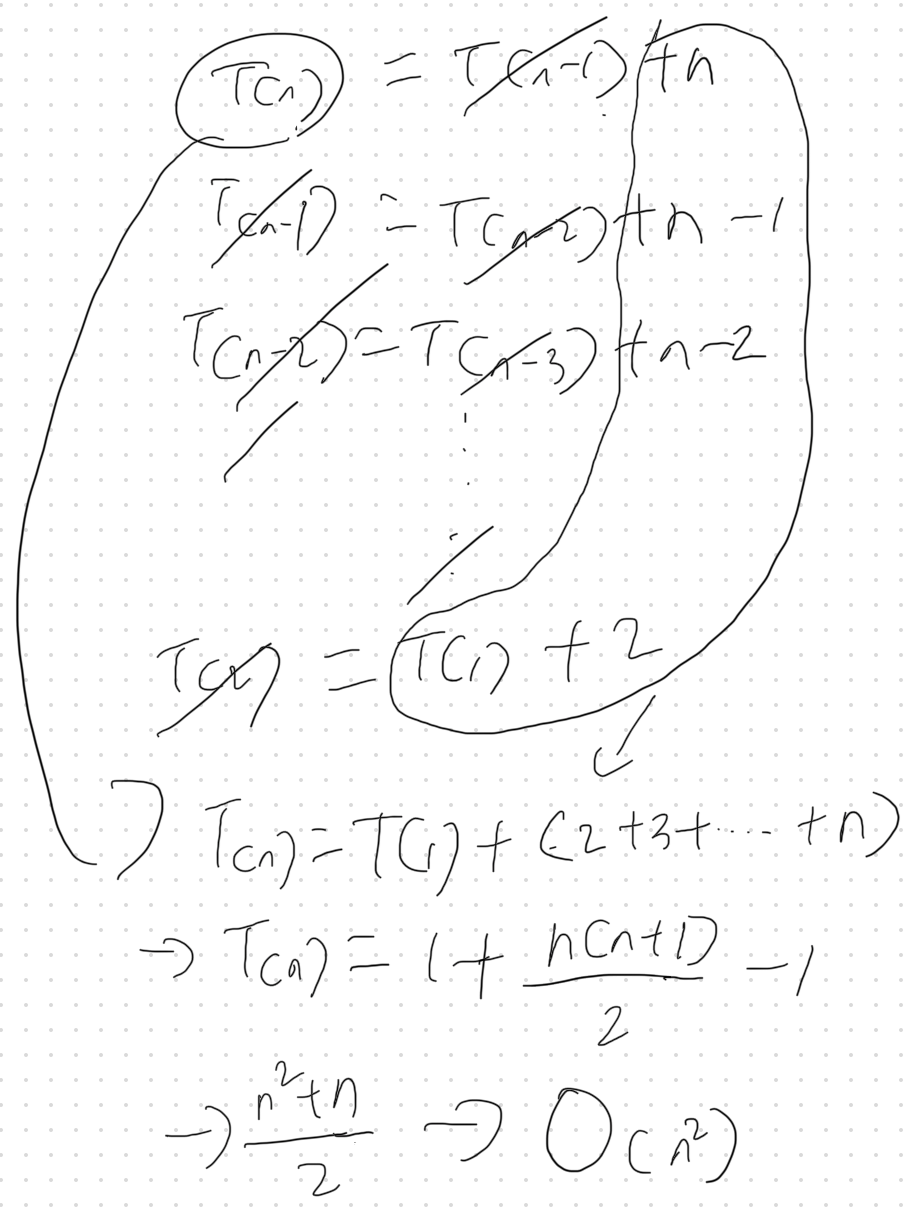 T(n) = T(n-1) + n
T(n-1) = T(n-2) + n - 1
T(n-2) = T(n-3) + n - 2
⋮
T(2) = T(1) + 2
T(n) = T(1) + (2+3+....+n)
→ T(n) = 1 + n(n+1)/2 - 1
→ n²+n/2 → O(n²)